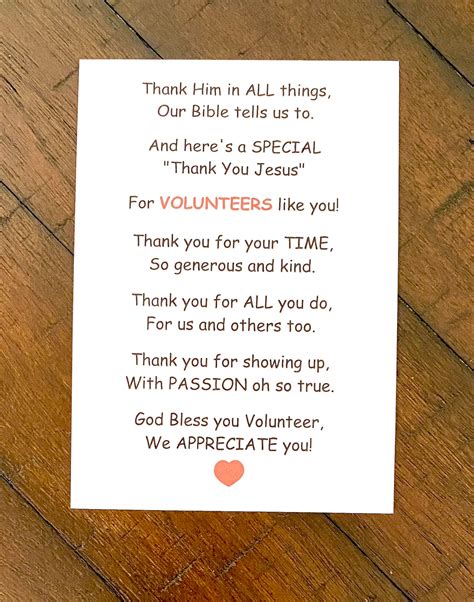 Thank Him in ALL things,
Our Bible tells us to.
And here's a SPECIAL
"Thank You Jesus"
For VOLUNTEERS like you!
Thank you for your TIME,
So generous and kind.
Thank you for ALL you do,
For us and others too.
Thank you for showing up,
With PASSION oh so true.
God Bless you Volunteer,
We APPRECIATE you!